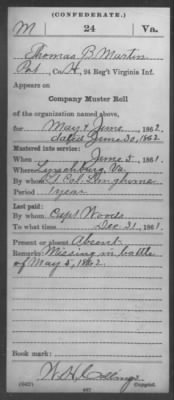 (CONFEDERATE.)
M 24 Va.
Thomas B. Martin
Pvt, Co. H, 24 Reg't Virginia Inf.
Appears on
Company Muster Roll
of the organization named above,
for May & June, 1862
dated June 30, 1862
Mustered into service:
When June 3, 1861
Where Lynchburg, Va.
By whom Lt. Col. Langhorne
Period 1 year
Last paid:
By whom Capt Woods
To what time Dec 31, 1861
Present or absent Absent
Remarks: Missing in battle
of May 5, 1862
Book mark:
(642) Copyist.